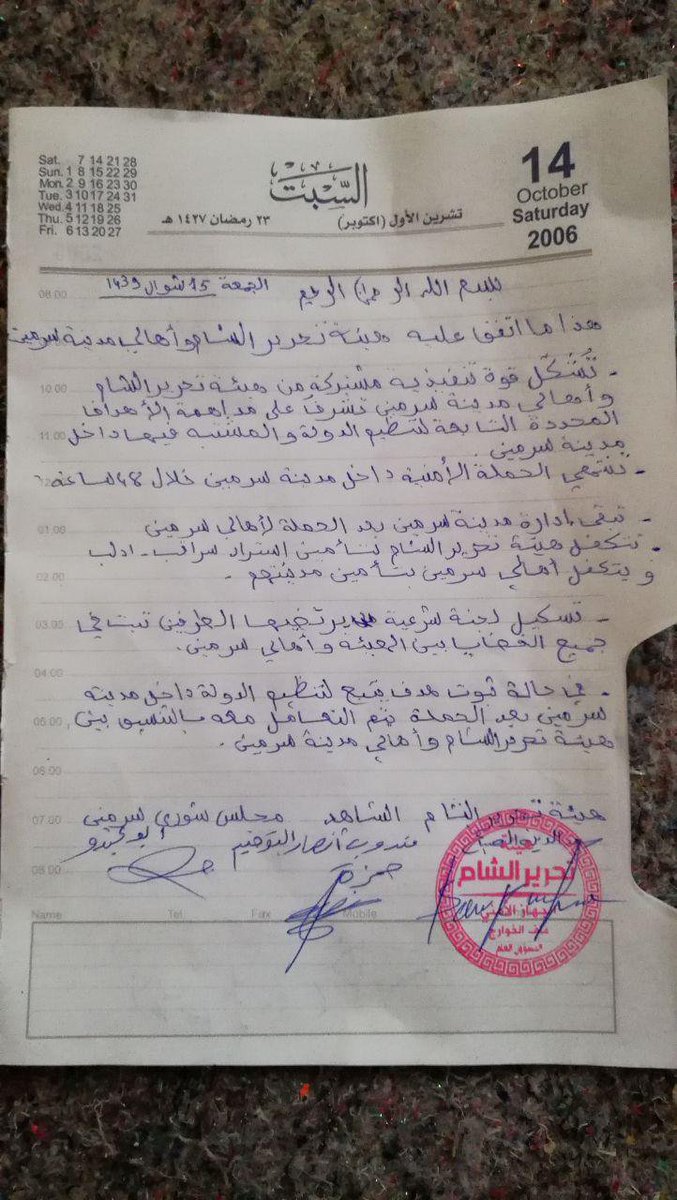 Sat. 7 14 21 28
Sun. 1 8 15 22 29
Mon. 2 9 16 23 30
Tue. 3 10 17 24 31
Wed. 4 11 18 25
Thu. 5 12 19 26
Fri. 6 13 20 27
السّبت
تشرين الأول (اكتوبر) ٢٣ رمضان ١٤٢٧ هـ
14
October
Saturday
2006
بسم الله الرحمن الرحيم الجمعة 15 شوال 1439
هذا ما اتفق عليه هيئة تحرير الشام وأهالي مدينة سرمين
- تُشكّل قوة تنفيذية مشتركة من هيئة تحرير الشام
وأهالي مدينة سرمين تشرف على مداهمة الأهداف
المحددة التابعة لتنظيم الدولة والمشتبه فيها داخل
مدينة سرمين.
- تنتهي الحملة الأمنية داخل مدينة سرمين خلال 48 ساعة
- تبقى إدارة مدينة سرمين بعد الحملة لأهالي سرمين
- تتكفل هيئة تحرير الشام بتأمين استراد سراقب - ادلب
ويتكفل أهالي سرمين بتأمين مدينتهم.
- تشكيل لجنة شرعية يرتضيها الطرفين تبت في
جميع القضايا بين الهيئة وأهالي سرمين.
- في حالة ثبوت هدف يتبع لتنظيم الدولة داخل مدينة
سرمين بعد الحملة يتم التعامل معه بالتنسيق بين
هيئة تحرير الشام وأهالي مدينة سرمين.
هيئة تحرير الشام الشاهد مجلس شورى سرمين
مندوب أنصار التوحيد
حمزة
هيئة
تحرير الشام
الجهاز الأمني
ملف الخوارج
المسؤول العام
08.00
10.00
11.00
01.00
02.00
03.00
04.00
05.00
06.00
07.00
08.00
Name Tel. Fax Mobile